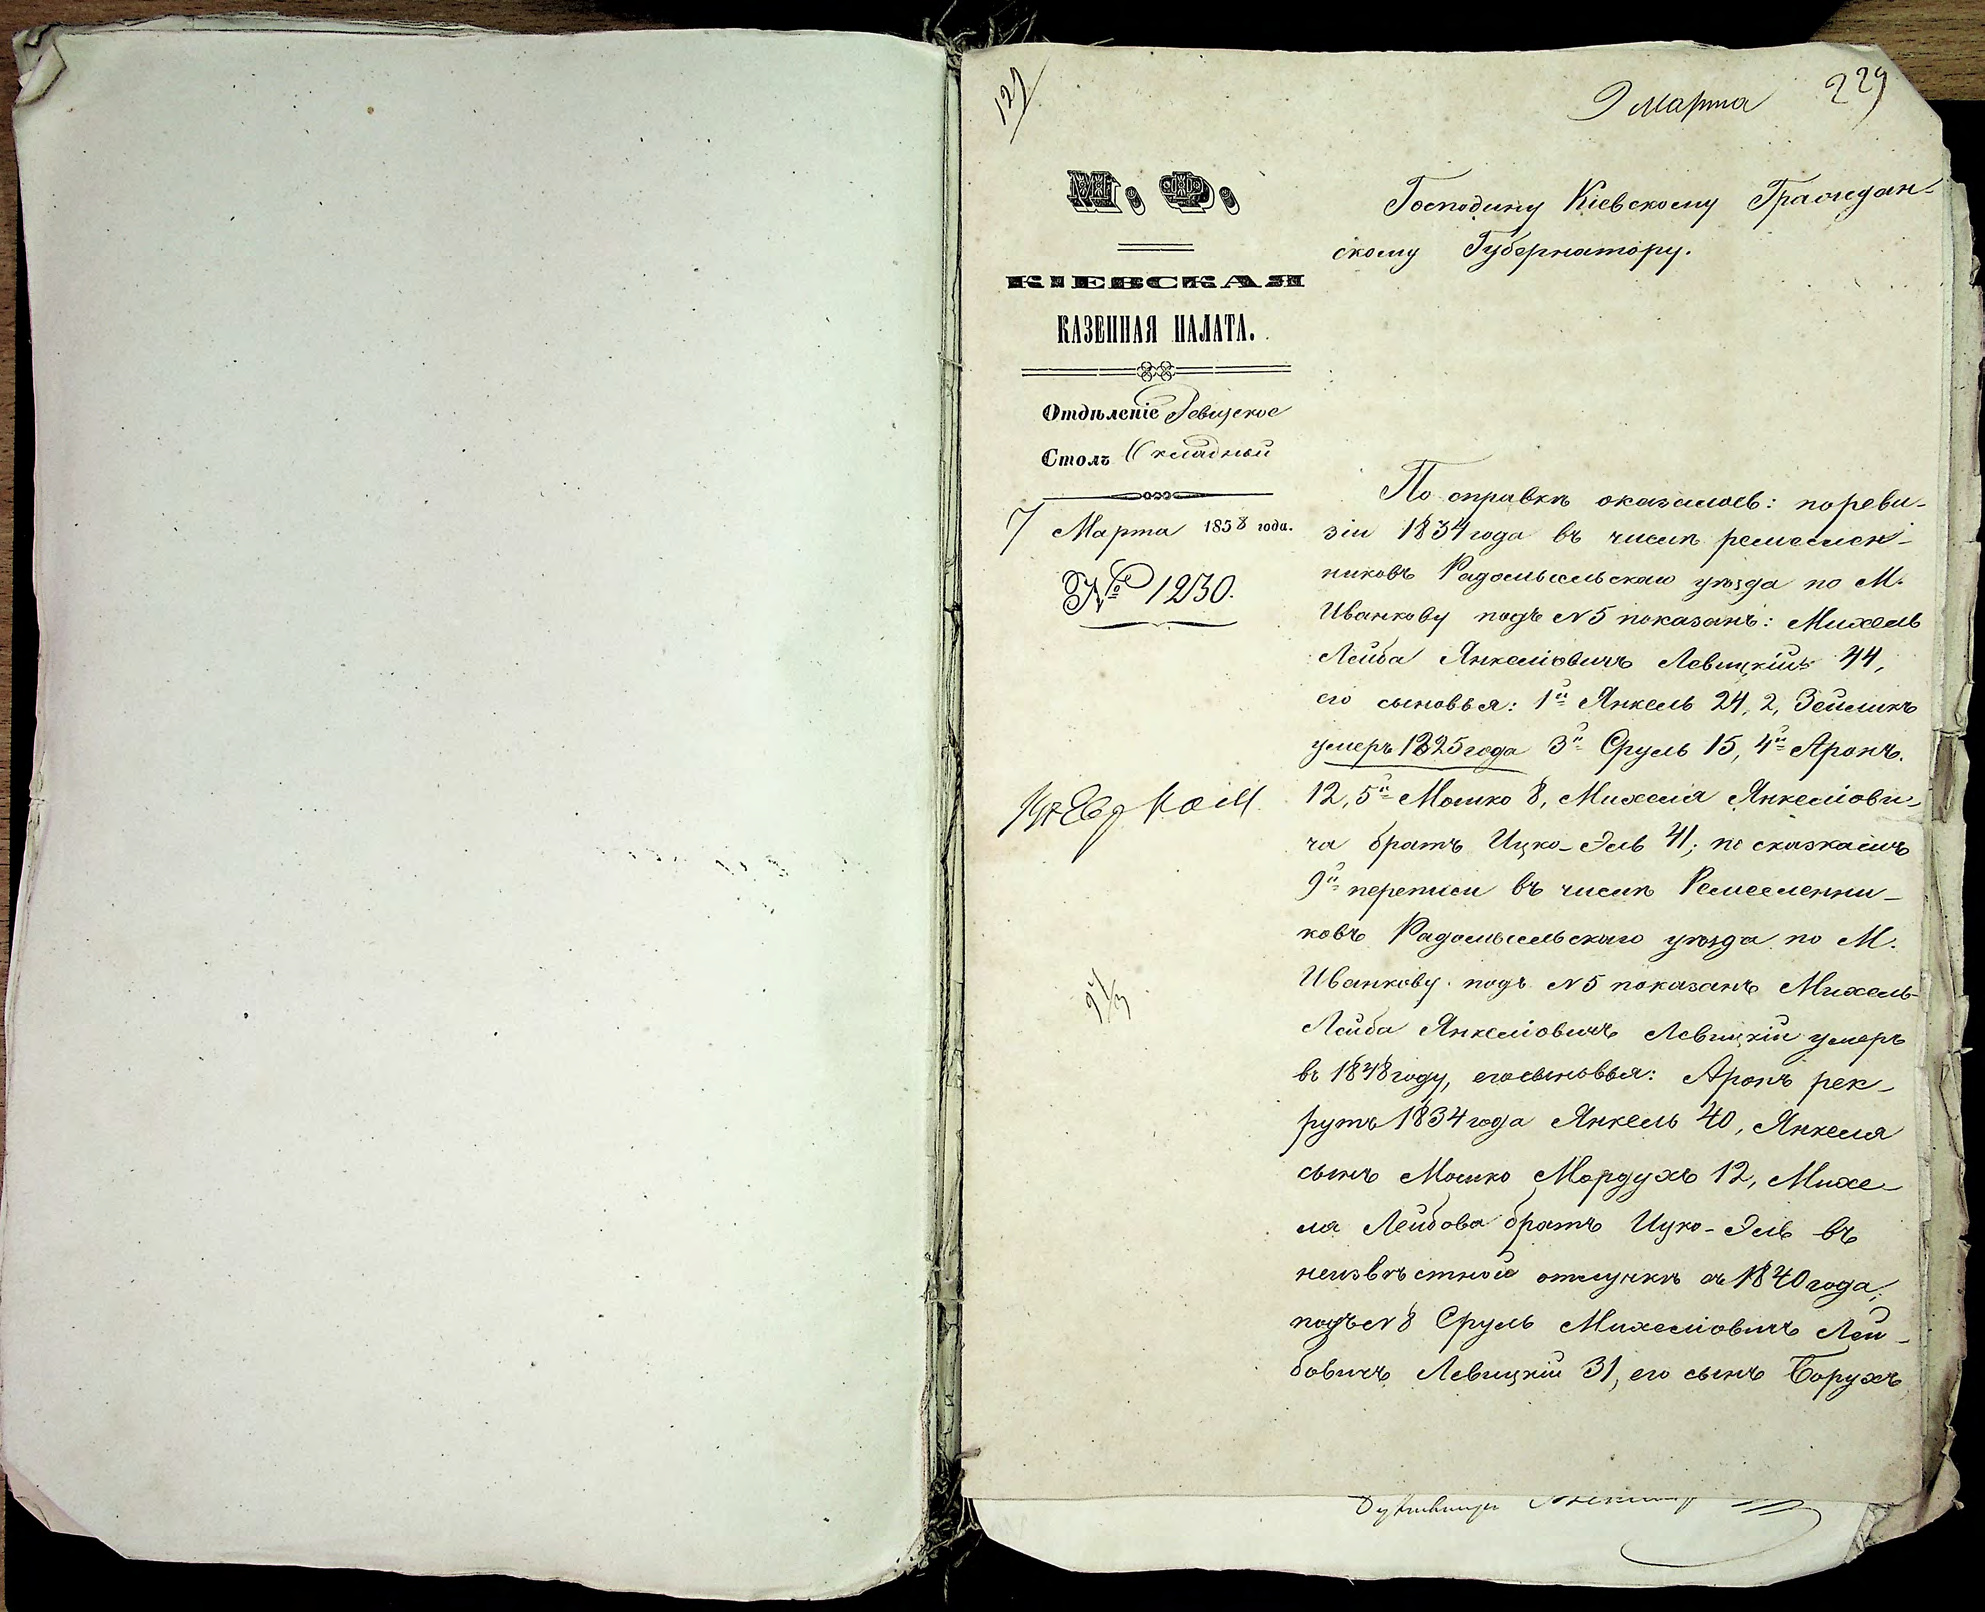 127
9 Марта
229
М. Ф.
КІЕВСКАЯ
КАЗЕННАЯ ПАЛАТА.
Отдѣленіе Ревизское
Столъ Окладный
7 Марта 1858 года.
№ 1230.
Господину Кіевскому Граждан-
скому Губернатору.
По справкѣ оказалось: по реви-
зіи 1834 года въ числѣ ремеслен-
никовъ Радомысльскаго уѣзда по М.
Иванкову подъ №5 показанъ: Михель
Лейба Янкеліовичъ Левицкій 44,
его сыновья: 1й Янкель 24, 2, Зейликъ
умеръ 1825 года 3й Сруль 15, 4й Аронъ.
12, 5й Мошко 8, Михеля Янкеліови-
ча братъ Ицко-Эль 41; по сказкамъ
9й переписи въ числѣ Ремесленни-
ковъ Радомысльскаго уѣзда по М.
Иванкову подъ №5 показанъ Михель-
Лейба Янкеліовичъ Левицкій умеръ
въ 1848 году, его сыновья: Аронъ рек-
рутъ 1834 года Янкель 40, Янкеля
сынъ Мошко Мордухъ 12, Михе-
ля Лейбова братъ Ицко-Эль въ
неизвѣстной отлучкѣ съ 1840 года;
подъ №8 Сруль Михеліовичъ Лей-
бовичъ Левицкій 31, его сынъ Борухъ